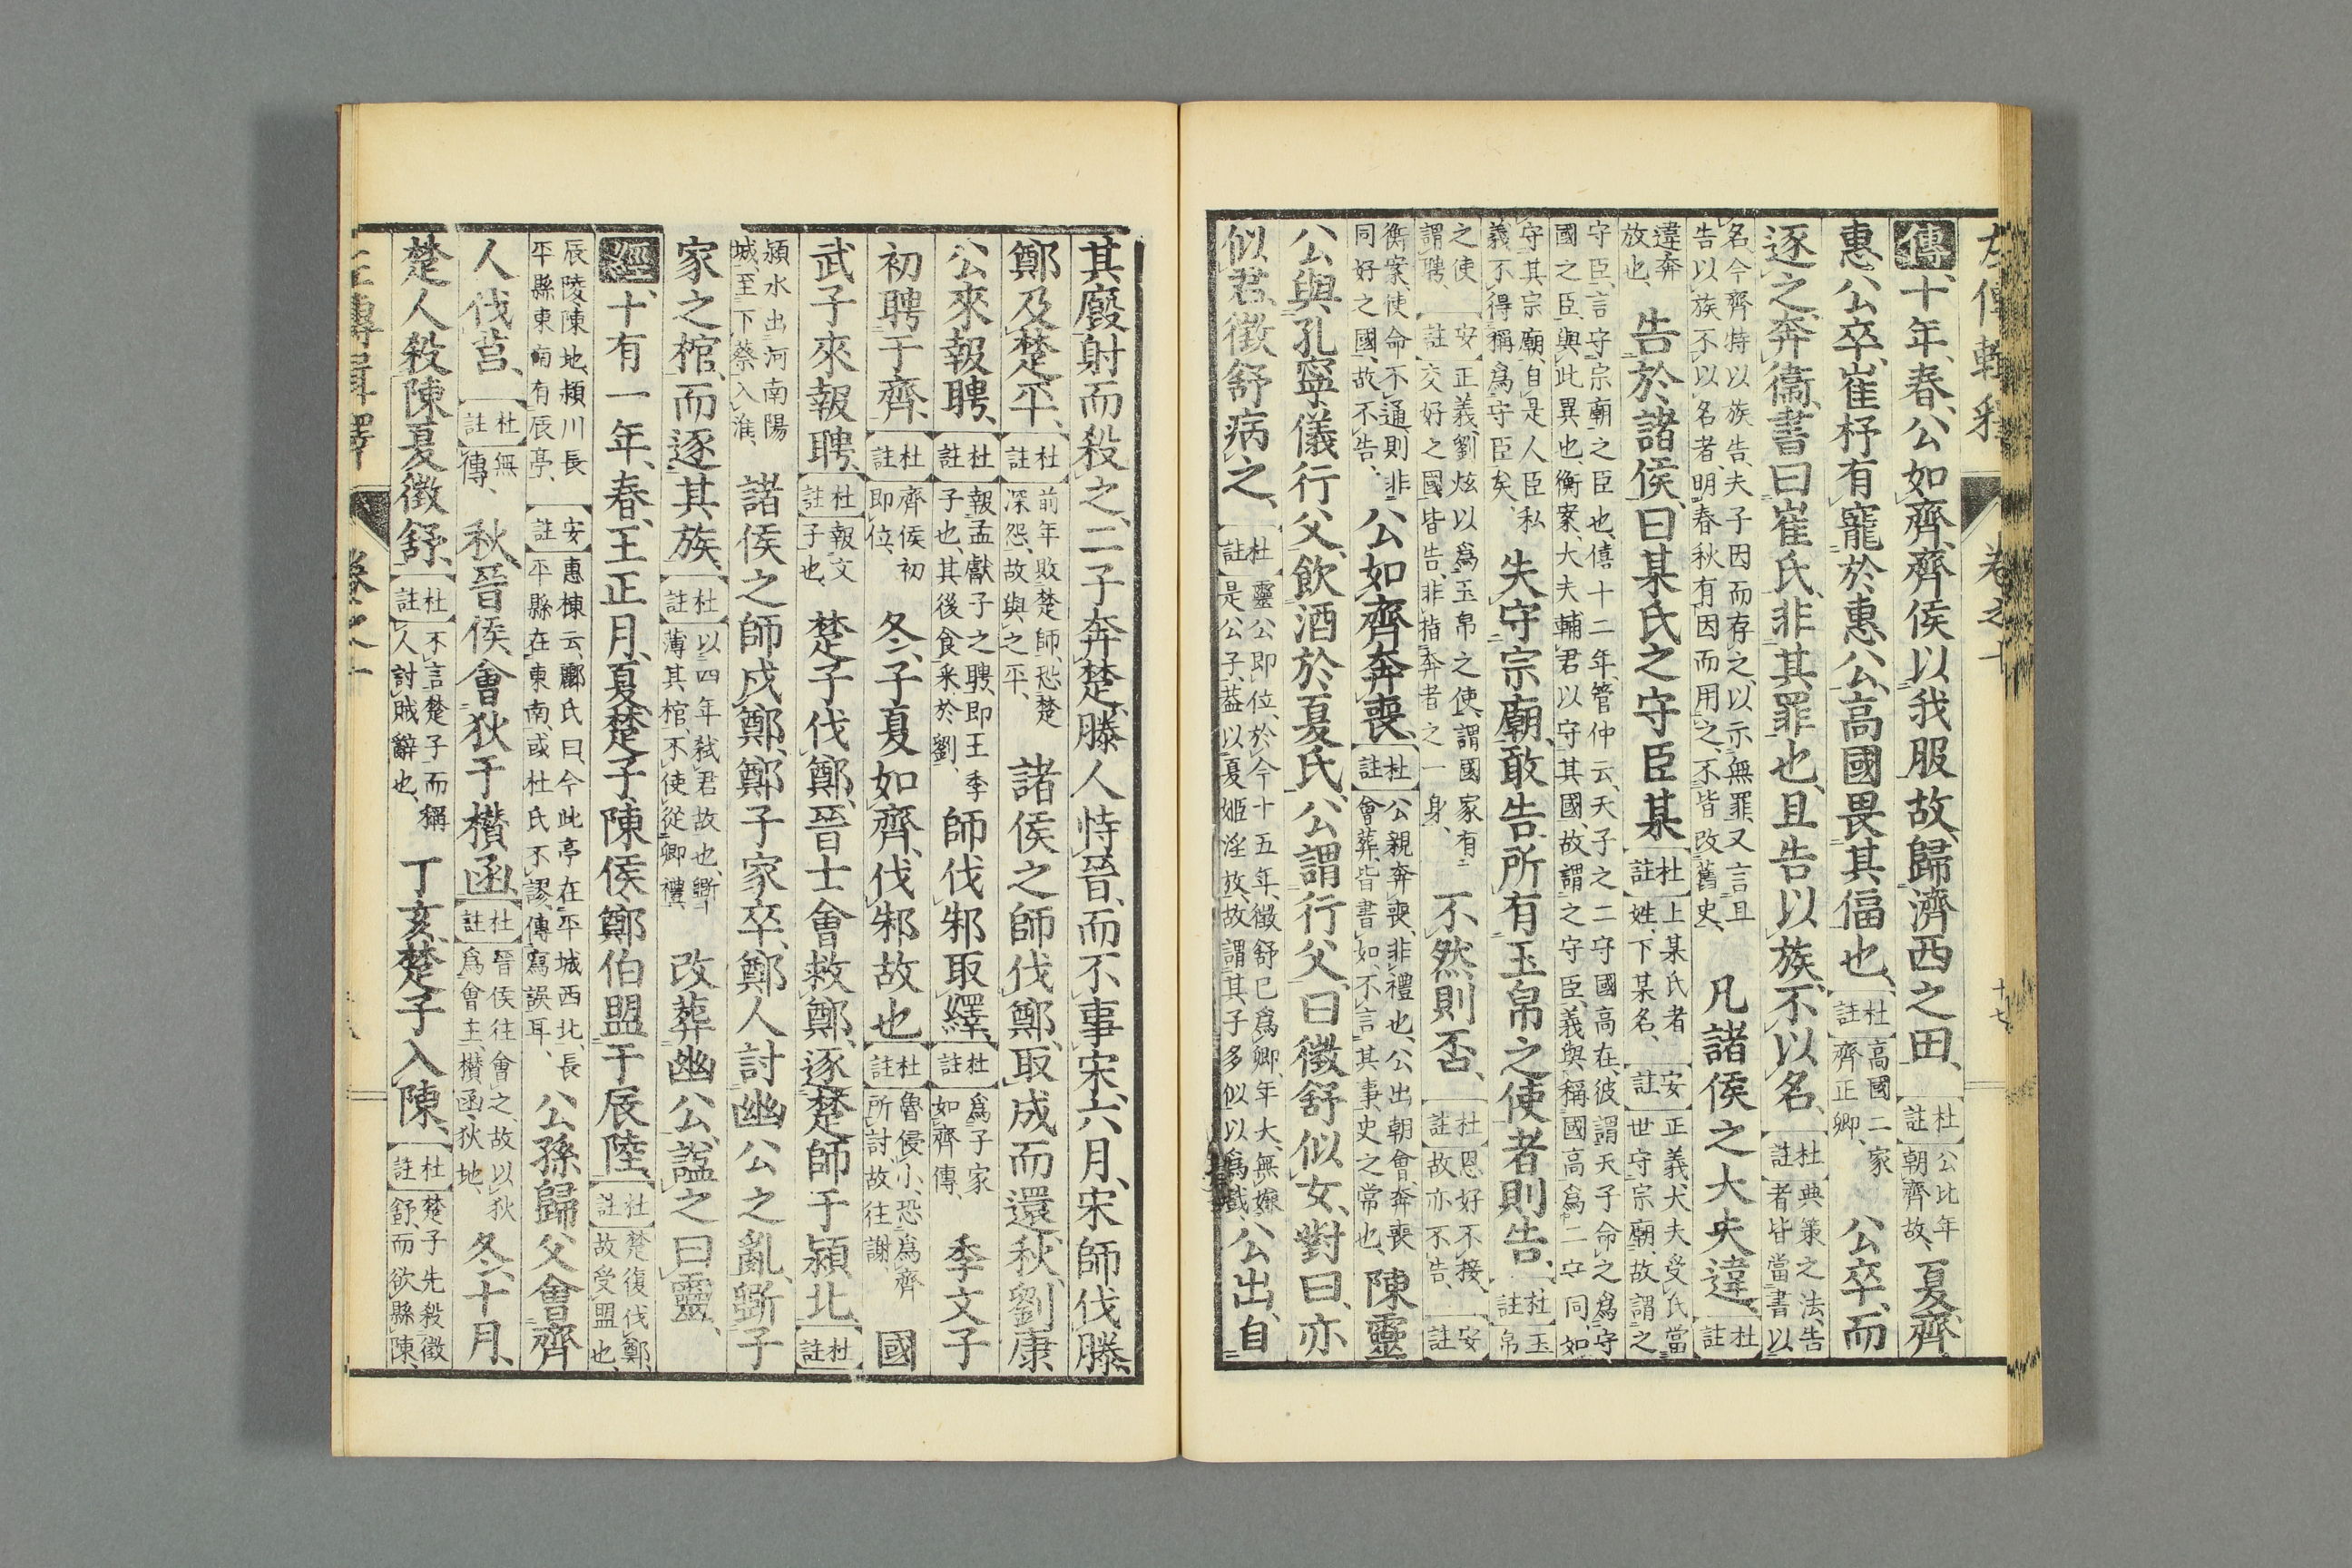 左傳輯釋 卷之十 十七
傳、十年、春、公如齊、齊侯以我服故、歸濟西之田、杜註公比年朝齊故、夏、齊
惠公卒、崔杼有寵於惠公、高國畏其偪也、杜註高國二家齊正卿、公卒、而
逐之、奔衞、書曰崔氏、非其罪也、且告以族、不以名、杜註典策之法、告者皆當書以
名、今齊特以族告、夫子因而存之、以示無罪、又言且告以族不以名者、明春秋有因而用之、不皆改舊史、凡諸侯之大夫違、杜註
違奔放也、告於諸侯、曰某氏之守臣某、杜註上某氏者姓、下某名、安註正義、大夫受氏、當世守宗廟、故謂之
守臣、言守宗廟之臣也、僖十二年、管仲云、天子之二守國高在、彼謂天子命之爲守、國之臣、與此異也、衡案、大夫輔君以守其國、故謂之守臣、義與稱國高爲二守同、如
守其宗廟、自是人臣私義、不得稱爲守臣矣、失守宗廟、敢告、所有玉帛之使者則告、杜註玉帛
之使謂聘、安註正義、劉炫以爲玉帛之使、謂國家有交好之國皆告、非指奔者之一身、不然則否、杜註恩好不接、故亦不告、安註
衡案、使命不通、則非同好之國、故不告、公如齊奔喪、杜註公親奔喪、非禮也、公出朝會、奔喪會葬、皆書如、不言其事、史之常也、陳靈
公與孔寧儀行父、飲酒於夏氏、公謂行父、曰徵舒似女、對曰、亦
似君、徵舒病之、杜註靈公即位、於今十五年、徵舒已爲卿、年大、無嫌是公子、蓋以夏姬淫放、故謂其子多似以爲戲、公出、自
其廏射而殺之、二子奔楚、滕人恃晉、而不事宋、六月、宋師伐滕、
鄭及楚平、杜註前年敗楚師、恐楚深怨、故與之平、諸侯之師伐鄭、取成而還、秋、劉康
公來報聘、杜註報孟獻子之聘、即王季子也、其後食采於劉、師伐邾取繹、杜註爲子家如齊傳、季文子
初聘于齊、杜註齊侯初即位、冬、子夏如齊、伐邾故也、杜註魯侵小、恐爲齊所討、故往謝、國
武子來報聘、杜註報文子也、楚子伐鄭、晉士會救鄭、逐楚師于潁北、杜註
潁水出河南陽城、至下蔡入淮、諸侯之師戍鄭、鄭子家卒、鄭人討幽公之亂、斲子
家之棺、而逐其族、杜註以四年弒君故也、斲薄其棺、不使從卿禮、改葬幽公、謚之曰靈、
經、十有一年、春、王正月、夏、楚子、陳侯、鄭伯盟于辰陸、杜註楚復伐鄭、故受盟也、
辰陵、陳地、潁川長平縣東南有辰亭、安註惠棟云、酈氏曰、今此亭在平城西北、長平縣在東南、或杜氏不謬、傳寫誤耳、公孫歸父會齊
人伐莒、杜註無傳、秋、晉侯會狄于欑函、杜註晉侯往會之、故以狄爲會主、欑函、狄地、冬、十月、
楚人殺陳夏徵舒、杜註不言楚子而稱人、討賊辭也、丁亥、楚子入陳、杜註楚子先殺徵舒、而欲縣陳、
左傳輯釋 卷之十